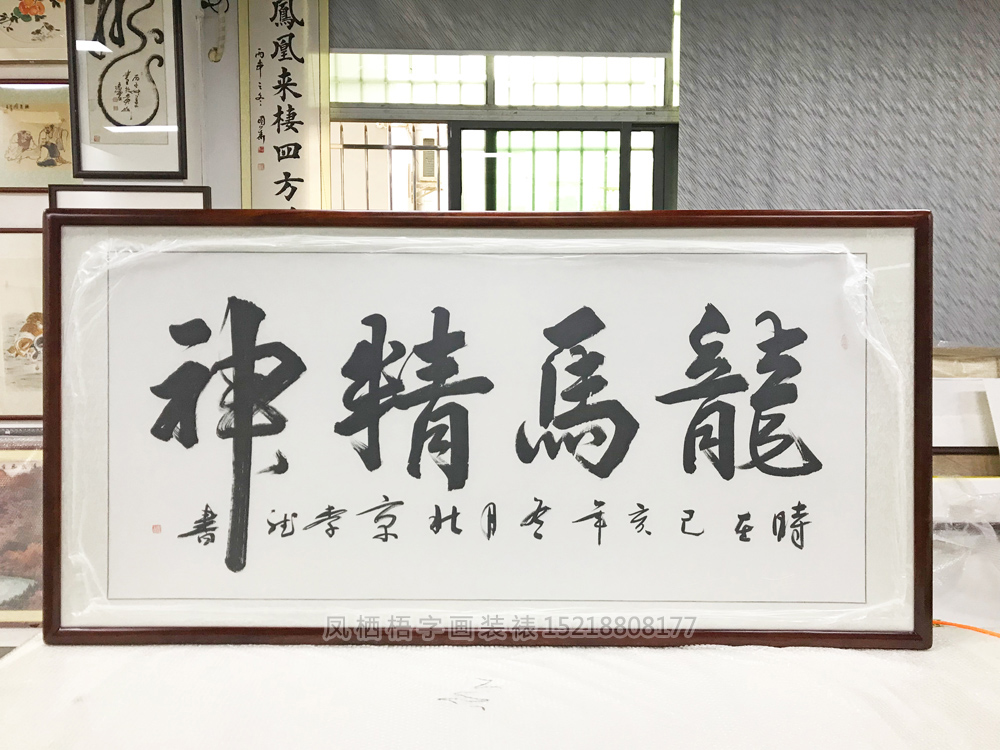 龍馬精神
時在己亥年冬月北京李書
鳳凰来棲四方
凤栖梧字画装裱15218808177